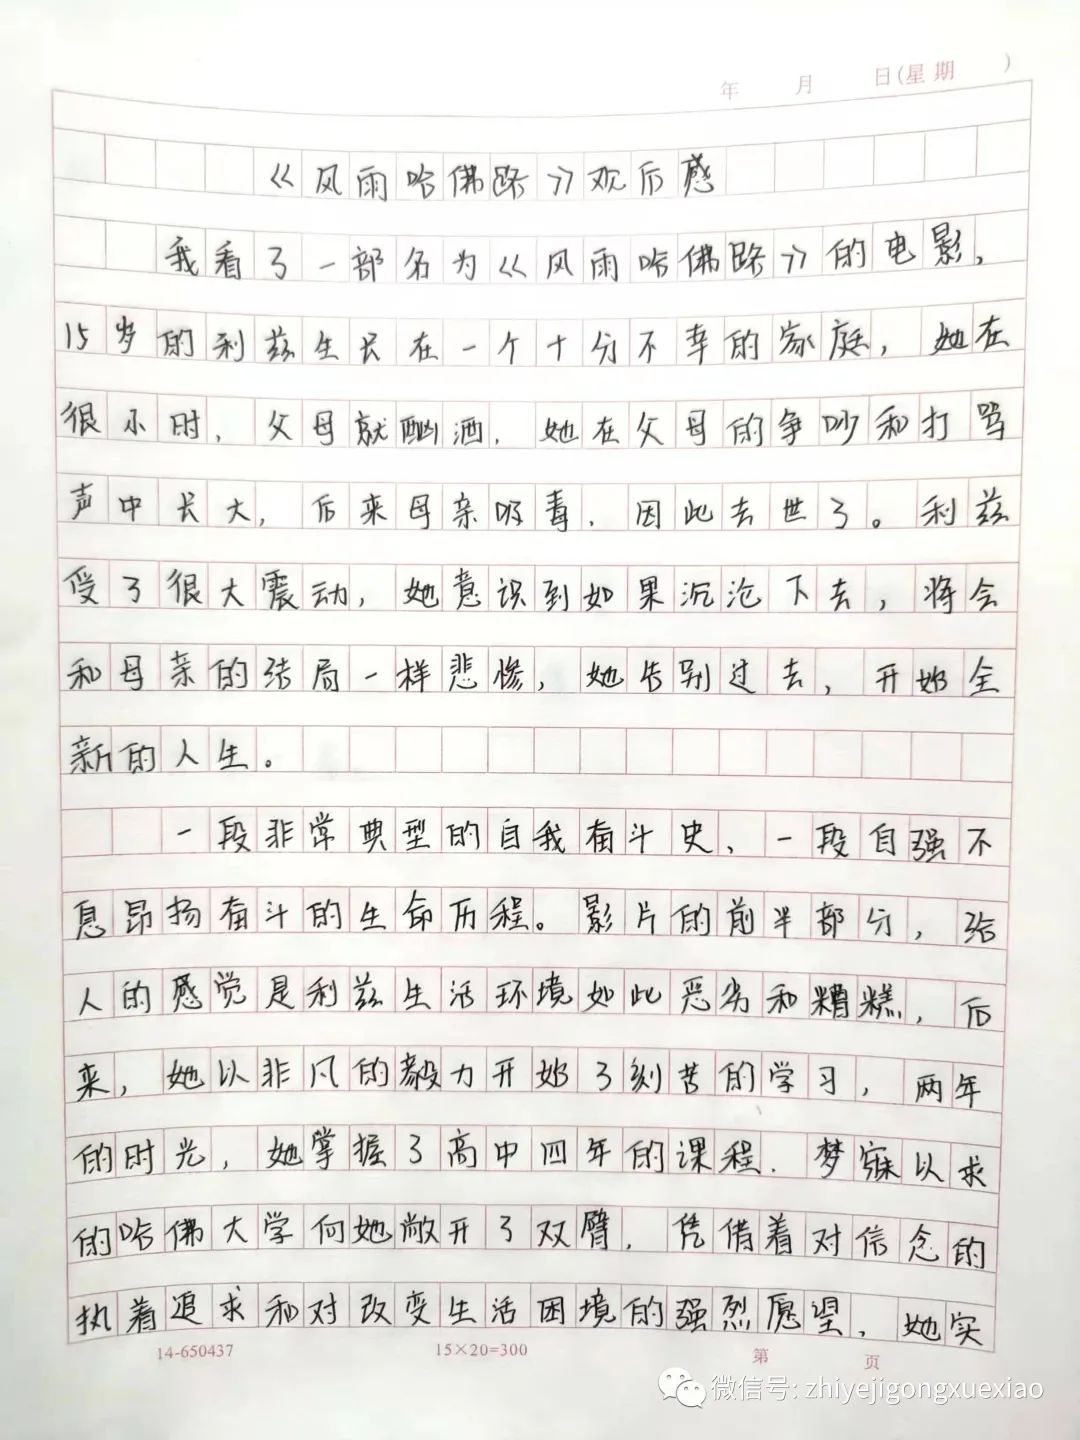 年 月 日(星期 )
《风雨哈佛路》观后感
我看了一部名为《风雨哈佛路》的电影,
15岁的利兹生长在一个十分不幸的家庭，她在
很小时，父母就酗酒，她在父母的争吵和打骂
声中长大，后来母亲吸毒，因此去世了。利兹
受了很大震动，她意识到如果沉沦下去，将会
和母亲的结局一样悲惨，她告别过去，开始全
新的人生。
一段非常典型的自我奋斗史、一段自强不
息昂扬奋斗的生命历程。影片的前半部分，给
人的感觉是利兹生活环境如此恶劣和糟糕，后
来，她以非凡的毅力开始了刻苦的学习，两年
的时光，她掌握了高中四年的课程．梦寐以求
的哈佛大学向她敞开了双臂．凭借着对信念的
执着追求和对改变生活困境的强烈愿望，她实
14-650437 15×20=300 第 页
微信号: zhiyejigongxuexiao